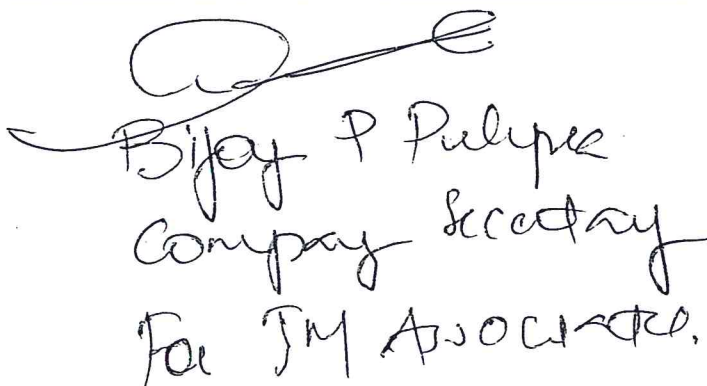 Bijoy P Pulipra
Company Secretary
For JM Associates.